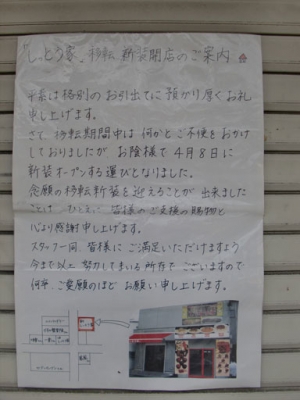 「しっとう家」移転 新装開店のご案内
平素は格別のお引出てに 預かり厚くお礼
申し上げます。
さて、移転期間中は 何かとご不便をおかけ
しておりましたが お陰様で 4月8日に
新装オープンする運びとなりました。
念願の移転新装を迎えることが 出来ました
ことは ひとえに 皆様のご支援の賜物と
心より感謝申し上げます。
スタッフ一同、皆様に ご満足いただけますよう
今まで以上 努力してまいる所存で ございますので
何卒、ご愛顧のほど お願い申し上げます。